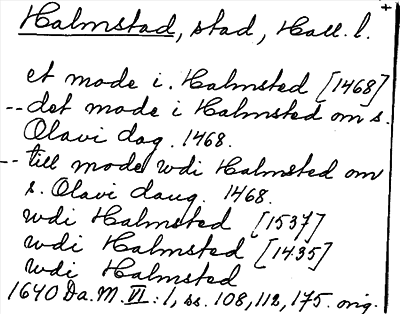 Halmstad, stad, Hall. l. +
et mode i. Halmsted [1468]
-- det mode i Halmsted om s.
Olavi dag. 1468.
-- till mode wdi Halmsted om
s. Olavi daug. 1468.
wdi Halmsted [1537]
wdi Halmsted [1435]
wdi Halmsted
1640 Da. M. VI: 1, ss. 108, 112, 175. orig.